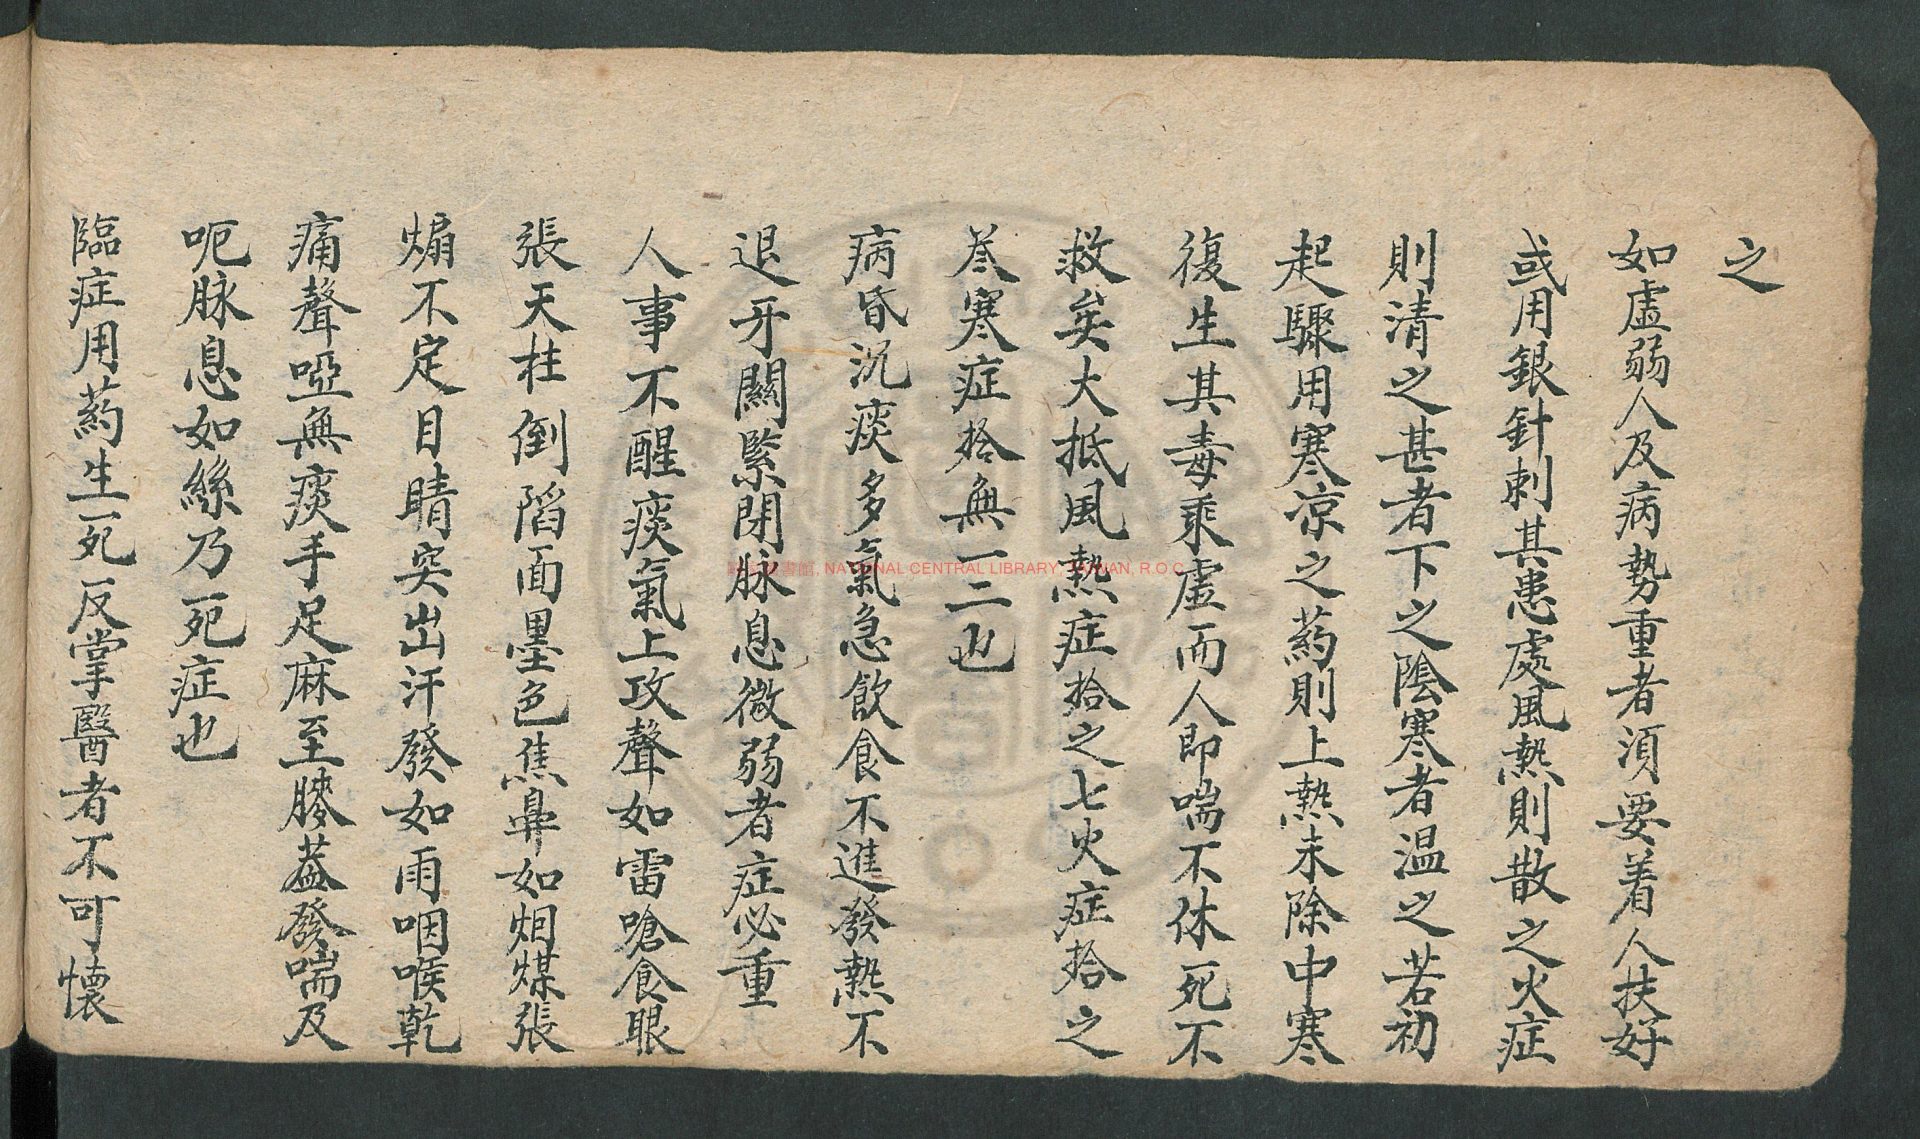 之
如虛弱人及病勢重者須要着人扶好
或用銀針刺其患處風熱則散之火症
則清之甚者下之陰寒者温之若初
起驟用寒凉之药則上熱未除中寒
復生其毒乘虛而人即喘不休死不
救矣大抵風熱症拾之七火症拾之
叁寒症拾無一二也
病昏沉痰多氣急飲食不進發熱不
退牙關緊閉脉息微弱者症必重
人事不醒痰氣上攻聲如雷嗆食眼
張天柱倒陷面墨色焦鼻如烟煤張
煽不定目睛突出汗發如雨咽喉乾
痛聲啞無痰手足麻至膝葢發喘及
呃脉息如絲乃死症也
臨症用药生死反掌醫者不可懷
圖書館, NATIONAL CENTRAL LIBRARY, TAIWAN, R.O.C